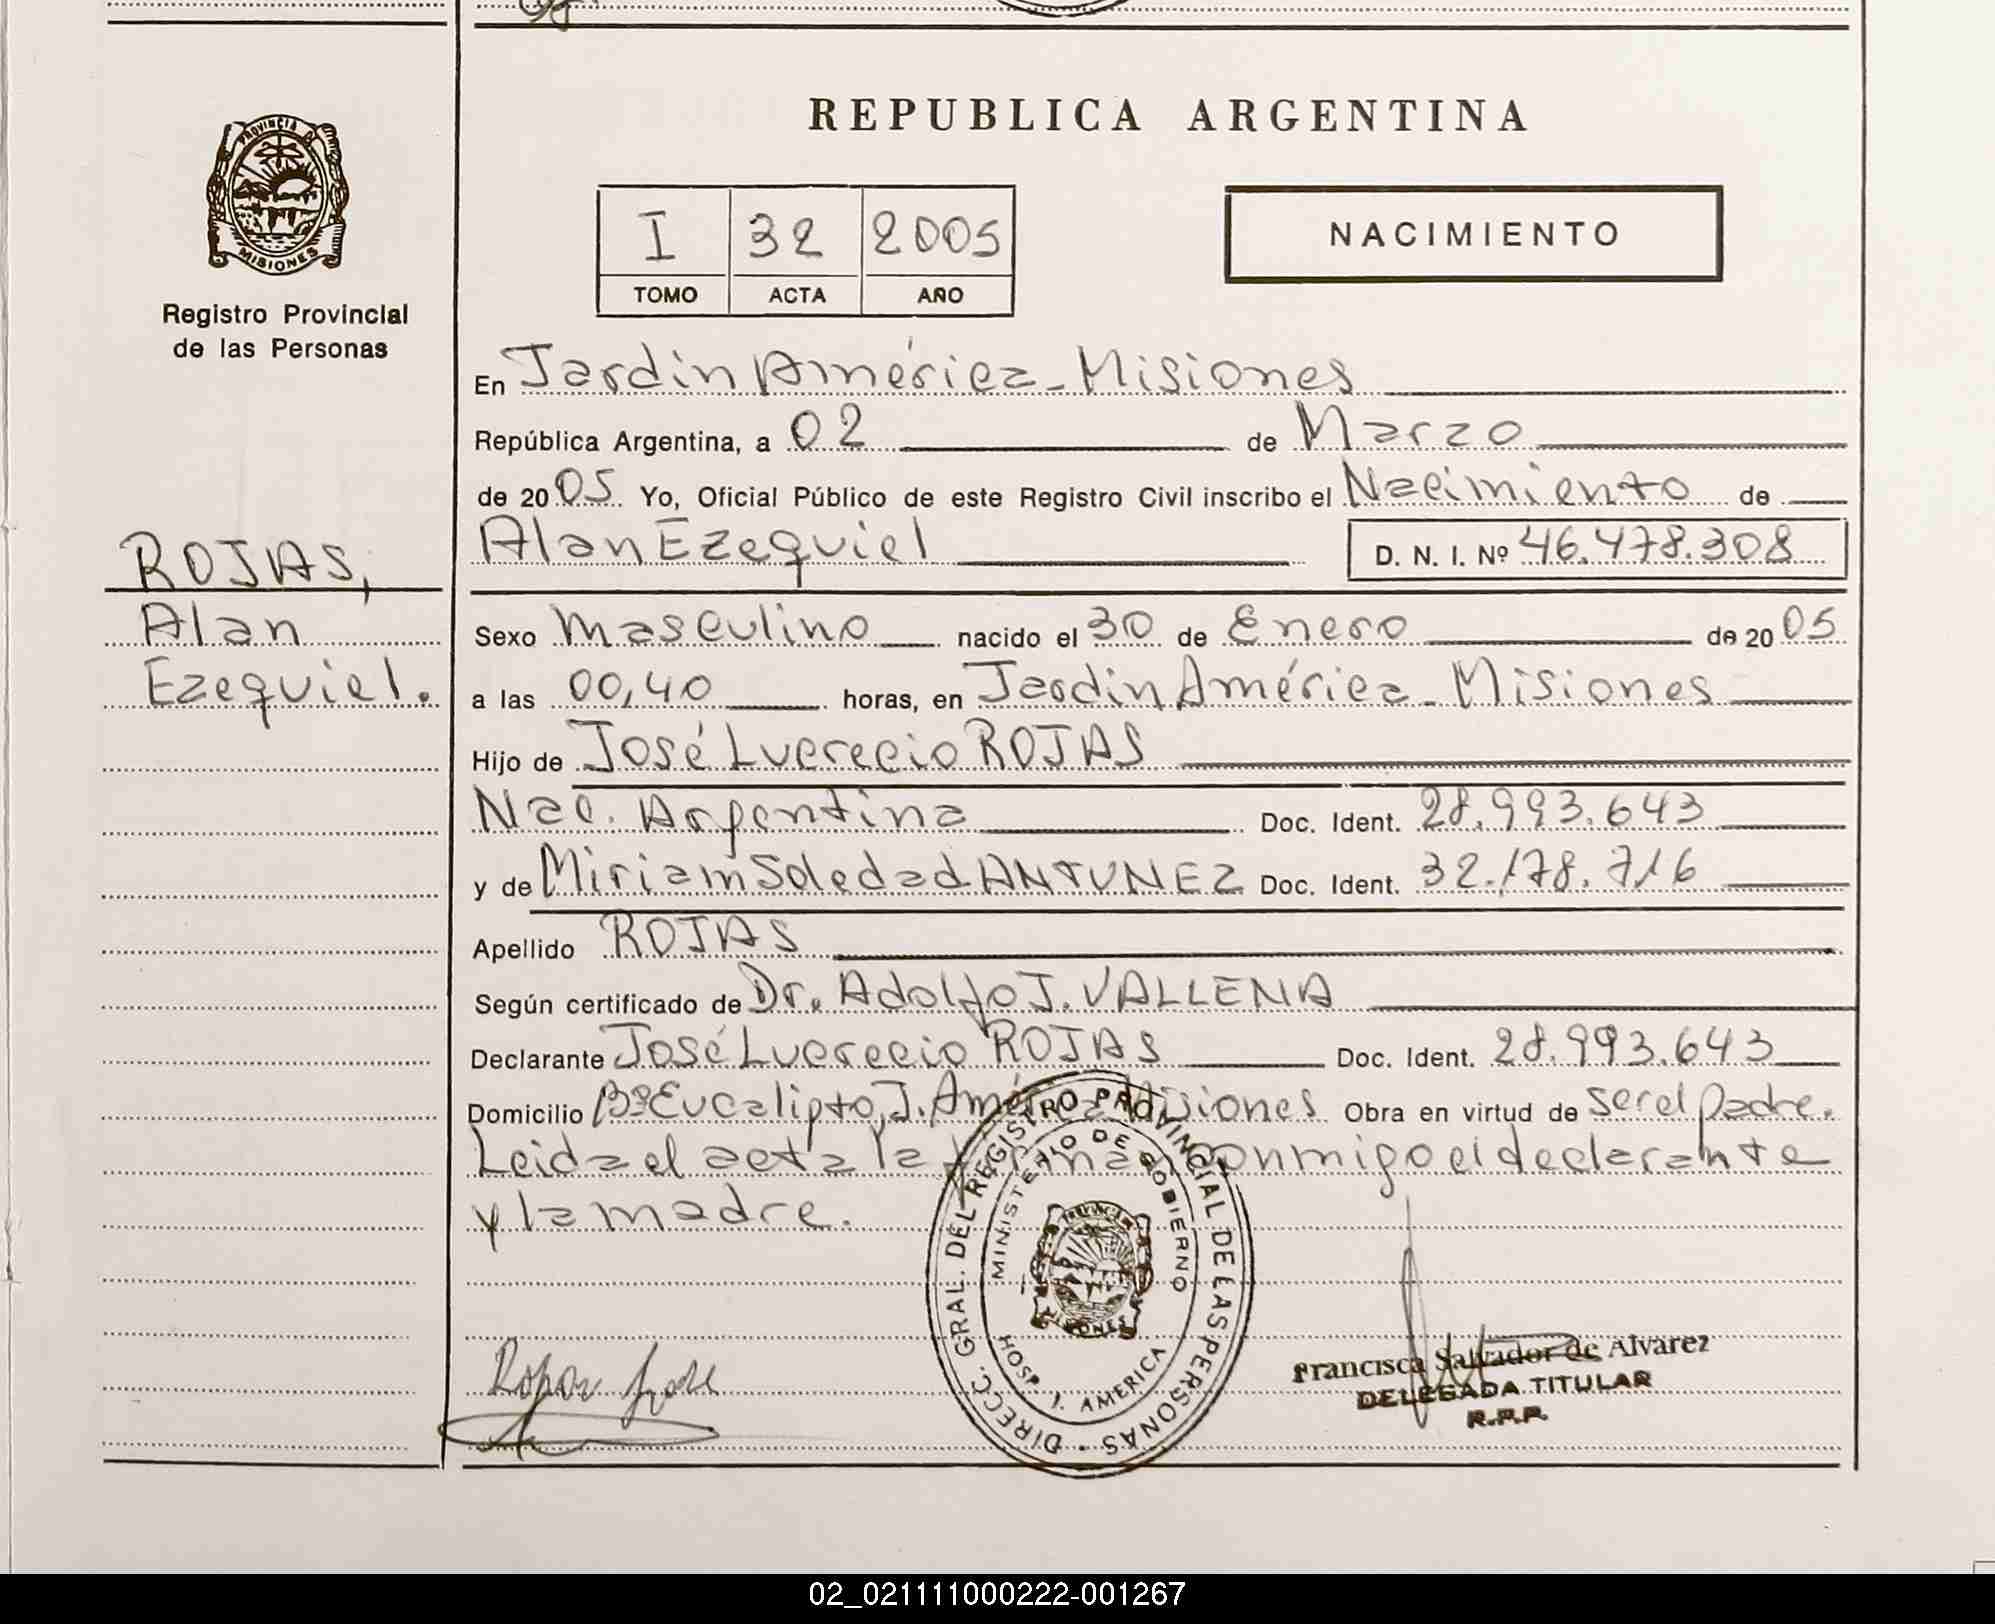 REPUBLICA ARGENTINA
PROVINCIA DE
MISIONES
Registro Provincial
de las Personas
I 32 2005
TOMO ACTA AÑO
NACIMIENTO
En Jardín América - Misiones
República Argentina, a 02 de Marzo
de 2005 Yo, Oficial Público de este Registro Civil inscribo el Nacimiento de
Alan Ezequiel D. N. I. Nº 46.478.308
ROJAS,
Alan
Ezequiel.
Sexo Masculino nacido el 30 de Enero de 2005
a las 00,40 horas, en Jardín América - Misiones
Hijo de José Lucrecio ROJAS
Nac. Argentina Doc. Ident. 28.993.643
y de Miriam Soledad ANTUNEZ Doc. Ident. 32.178.716
Apellido ROJAS
Según certificado de Dr. Adolfo J. VALLENA
Declarante José Lucrecio ROJAS Doc. Ident. 28.993.643
Domicilio Bº Eucalipto, J. América Misiones Obra en virtud de ser el padre.
Leida el acta la firman conmigo el declarante
y la madre.
DIRECC. GRAL. DEL REGISTRO PROVINCIAL DE LAS PERSONAS
MINISTERIO DE GOBIERNO
HOSP. J. AMERICA
Francisca Salvador de Alvarez
DELEGADA TITULAR
R.P.P.
02_021111000222-001267